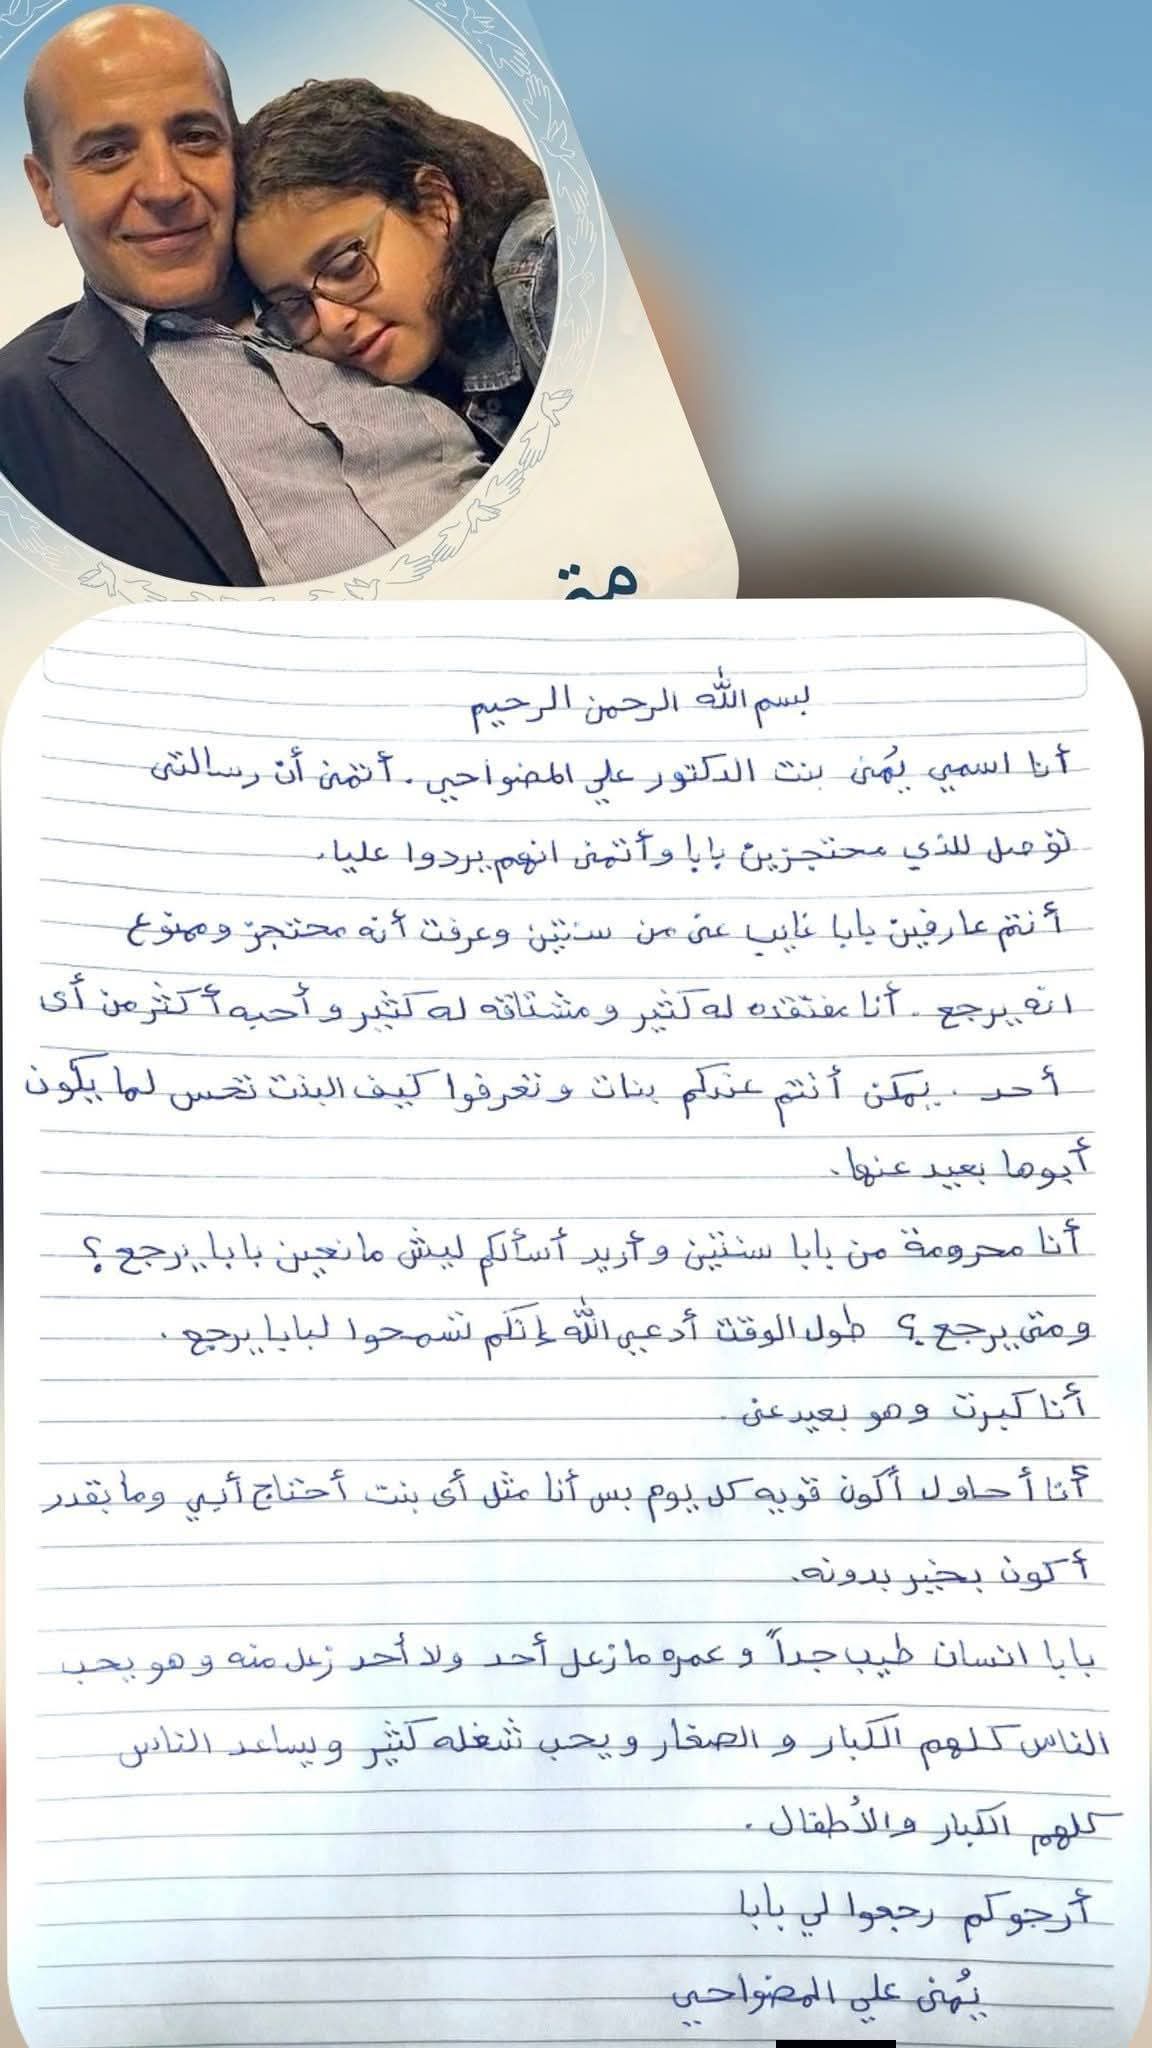 متى
بسم الله الرحمن الرحيم
أنا اسمي يُمنى بنت الدكتور علي المضواحي. أتمنى أن رسالتي
توصل للذي محتجزين بابا وأتمنى انهم يردوا عليا.
أنتم عارفين بابا غايب عني من سنتين وعرفت أنه محتجز وممنوع
انه يرجع. أنا مفتقده له كثير ومشتاقه له كثير وأحبه أكثر من أي
أحد. يمكن أنتم عندكم بنات وتعرفوا كيف البنت تحس لما يكون
أبوها بعيد عنها.
أنا محرومة من بابا سنتين وأريد أسألكم ليش مانعين بابا يرجع؟
ومتى يرجع؟ طول الوقت أدعي الله إنكم تسمحوا لبابا يرجع.
أنا كبرت وهو بعيد عني.
أنا أحاول أكون قويه كل يوم بس أنا مثل أي بنت أحتاج أبي وما بقدر
أكون بخير بدونه.
بابا انسان طيب جداً وعمره ما زعل أحد ولا أحد زعل منه وهو يحب
الناس كلهم الكبار و الصغار ويحب شغله كثير ويساعد الناس
كلهم الكبار والأطفال.
أرجوكم رجعوا لي بابا
يُمنى علي المضواحي